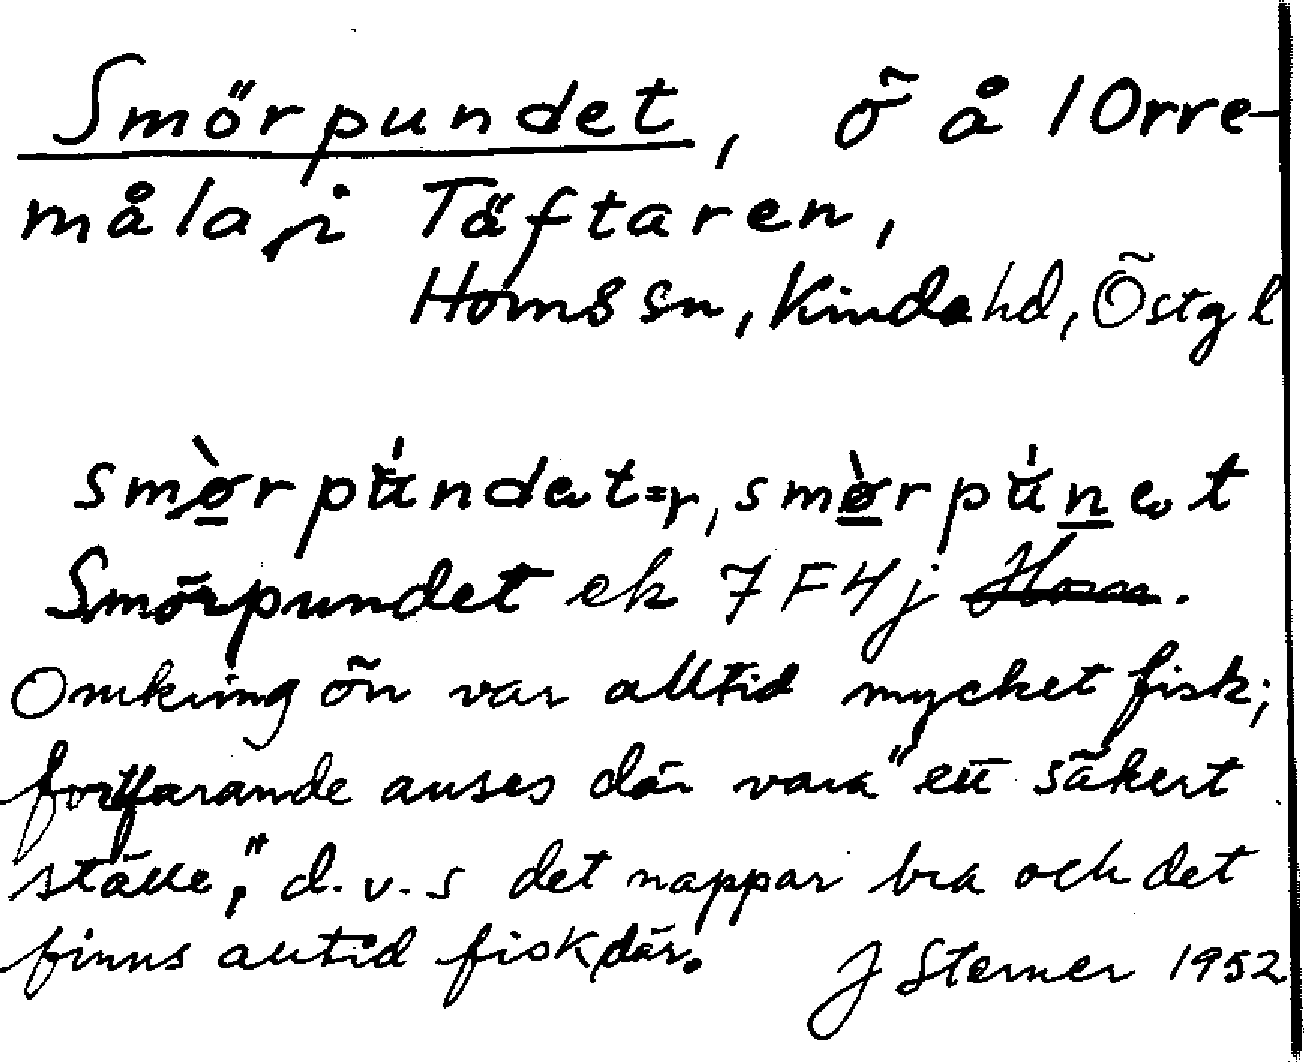 Smörpundet, ö å 1 Orre-
måla, i Täftaren,
Horns sn, Kinda hd, Östgl
smø̀rpúndət=r, smø̀rpúnət
Smörpundet ek 7F4j Horn.
Omkring ön var alltid mycket fisk;
fortfarande anses där vara "ett säkert
ställe", d.v.s det nappar bra och det
finns alltid fisk där.
J Sterner 1952